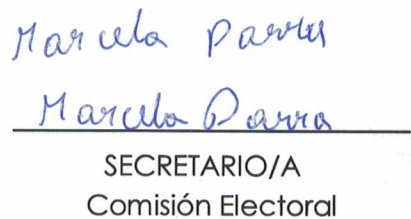 Marcela Parra
Marcela Parra
SECRETARIO/A
Comisión Electoral